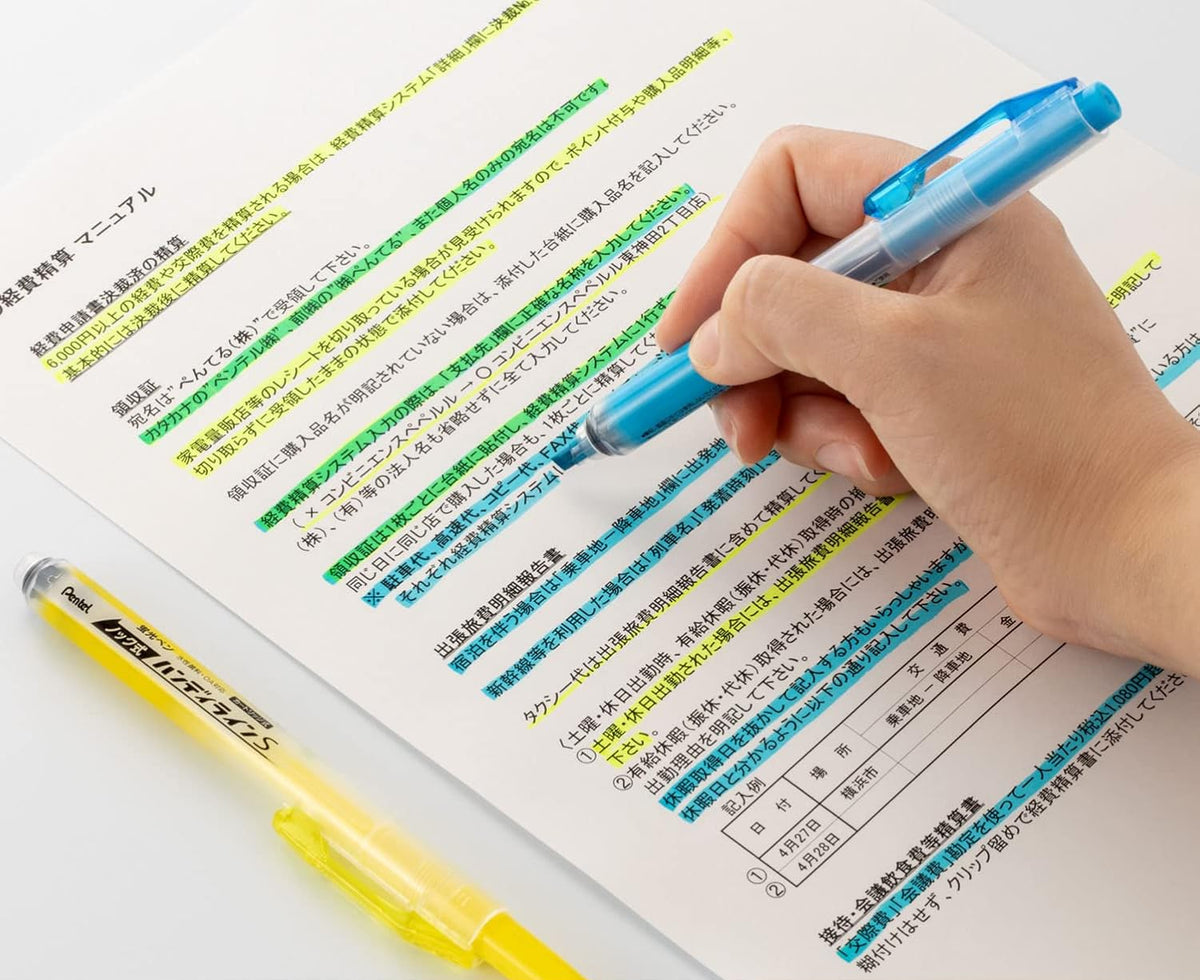 経費精算 マニュアル
経費申請書決裁済の精算
6,000円以上の経費や交際費を精算される場合は、経費精算システム「詳細」欄に決裁No.
基本的には決裁後に精算してください。
領収証
宛名は”ぺんてる(株)”で受領して下さい。
カタカナの”ペンテル㈱” 前㈱の”㈱ぺんてる” また個人名のみの宛名は不可です。
家電量販店等のレシートを切り取っている場合が見受けられますので、ポイント付与や購入品明細等、
切り取らずに受領したままの状態で添付してください。
領収証に購入品名が明記されていない場合は、添付した台紙に購入品名を記入してください。
経費精算システム入力の際は、「支払先」欄に正確な名称を入力してください。
(× コンビニエンスペペルル → ○ コンビニエンスペペルル東神田2丁目店)
(株)、(有)等の法人名も省略せずに全て入力してください。
領収証は1枚ごとに台紙に貼付し、経費精算システムに1行ずつ
同じ日に同じ店で購入した場合も、1枚ごとに精算してく
※ 駐車代、高速代、コピー代、FAX代
それぞれ経費精算システム
明記して
出張旅費明細報告書
宿泊を伴う場合は「乗車地ー降車地」欄に出発地
新幹線等を利用した場合は「列車名」「発着時刻」
タクシー代は出張旅費明細報告書に含めて精算してく
〈土曜・休日出勤時 - 有給休暇(振休・代休)取得時の
①土曜・休日出勤された場合には、出張旅費明細報告書
下さい。
②有給休暇(振休・代休)取得された場合には、出張旅費明
出勤理由を明記して下さい。
休暇取得日を抜かして記入する方もいらっしゃいますが
休暇日と分かるように以下の通り記入して下さい。
記入例
日 付 場 所 交 通 費 金
乗車地 − 降車地
① 4月27日 横浜市
② 4月28日
接待・会議飲食費等精算書
「交際費」「会議費」勘定を使って一人当たり税込1,080円
糊付けはせず、クリップ留めで経費精算書に添付してくださ
Pentel
蛍光ペン
ノック式
ハンディライン